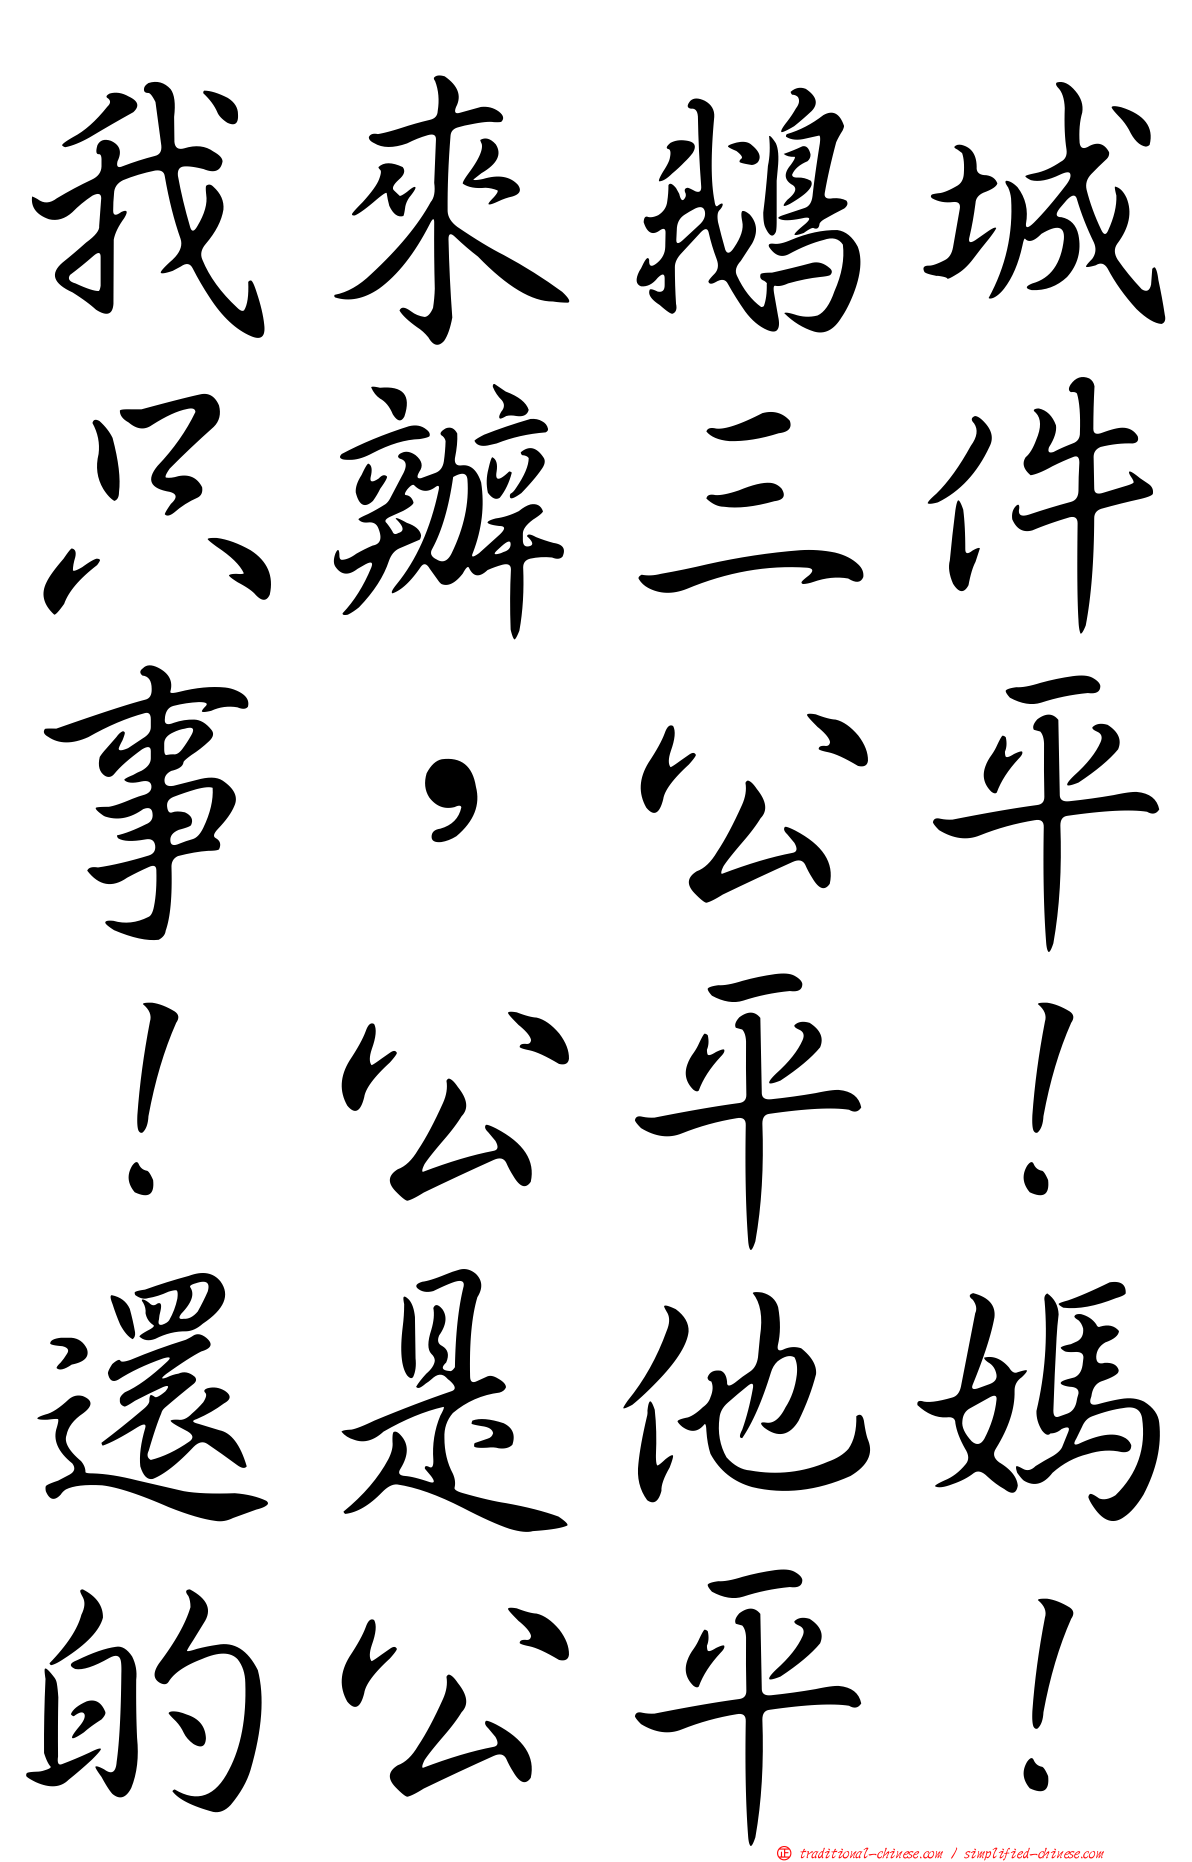 我來鵝城
只辦三件
事，公平
！公平！
還是他媽
的公平！
正 traditional-chinese.com / simplified-chinese.com